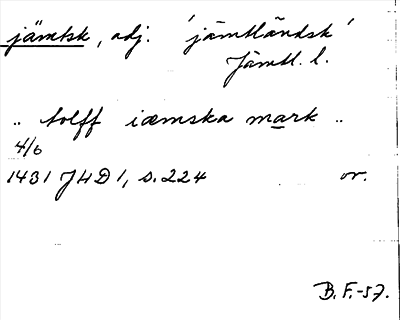 jämtsk, adj. 'jämtländsk'
Jämtl. l.
.. tolff iæmska mark ..
4/6
1431 JHD 1, s. 224 or.
B. F. -57.